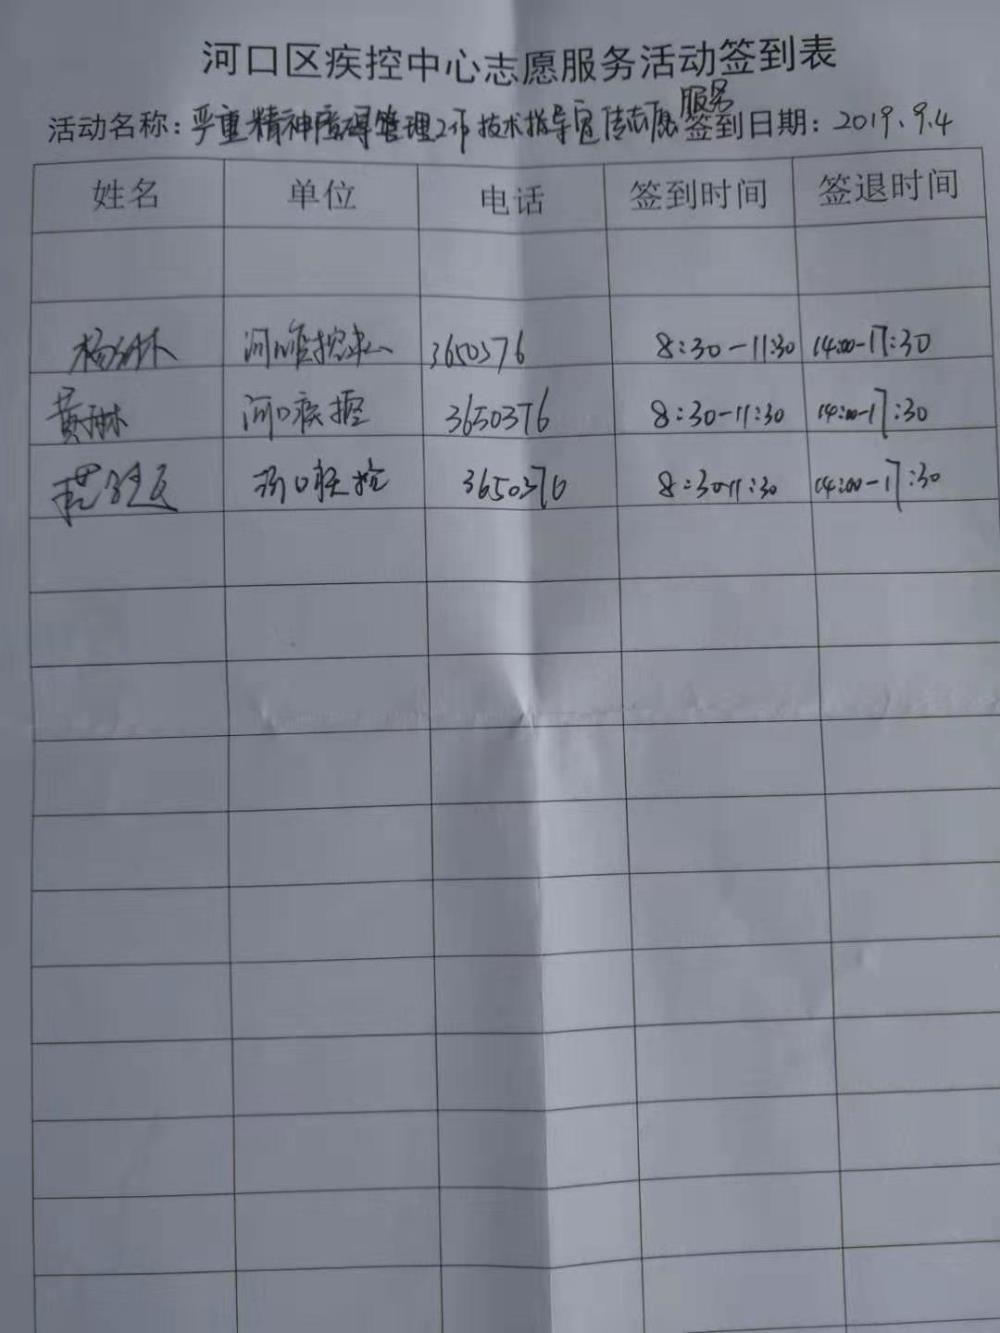 河口区疾控中心志愿服务活动签到表
活动名称：严重精神障碍管理工作技术指导宣传志愿服务 签到日期：2019.9.4
姓名 单位 电话 签到时间 签退时间
河口疾控中心 3650376 8:30-11:30 14:00-17:30
黄琳 河口疾控 3650376 8:30-11:30 14:00-17:30
河口疾控 3650376 8:30-11:30 14:00-17:30